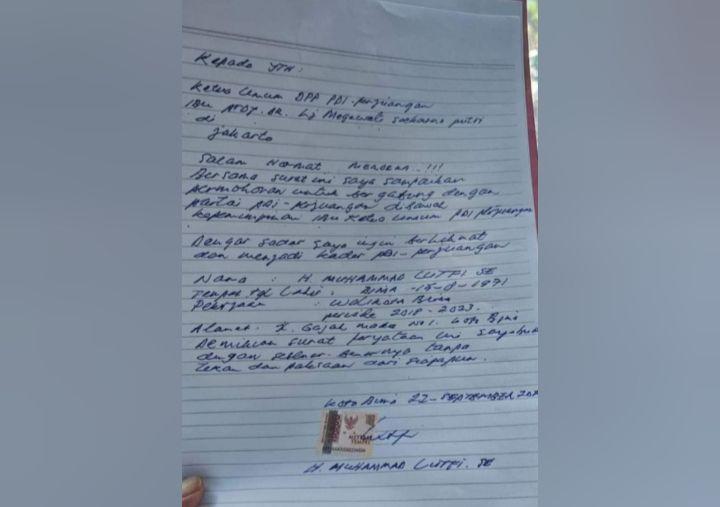 Kepada YTH :
Ketua Umum DPP PDI-Perjuangan
Ibu Prof. DR. Hj Megawati Soekarno putri
di
Jakarta
Salam Hormat Merdeka..!!!
Bersama surat ini saya sampaikan
permohonan untuk bergabung dengan
partai PDI-Perjuangan dibawah
kepemimpinan Ibu Ketua Umum PDI Perjuangan
Dengan sadar saya ingin berkhikmat
dan menjadi kader PDI-perjuangan
Nama : H. MUHAMMAD LUTFI SE
Tempat tgl Lahir : BIMA -15-8-1971
Pekerjaan : Walikota Bima
periode 2018-2023.
Alamat. Jl. Gajah mada No 1. Kota Bima
Demikian surat peryataan ini saya buat
dengan sebenar-benarnya tanpa
tekan dan paksaan dari siapapun.
Kota Bima 22-SEPTEMBER
METERAI
TEMPEL
H. MUHAMMAD LUTFI. SE